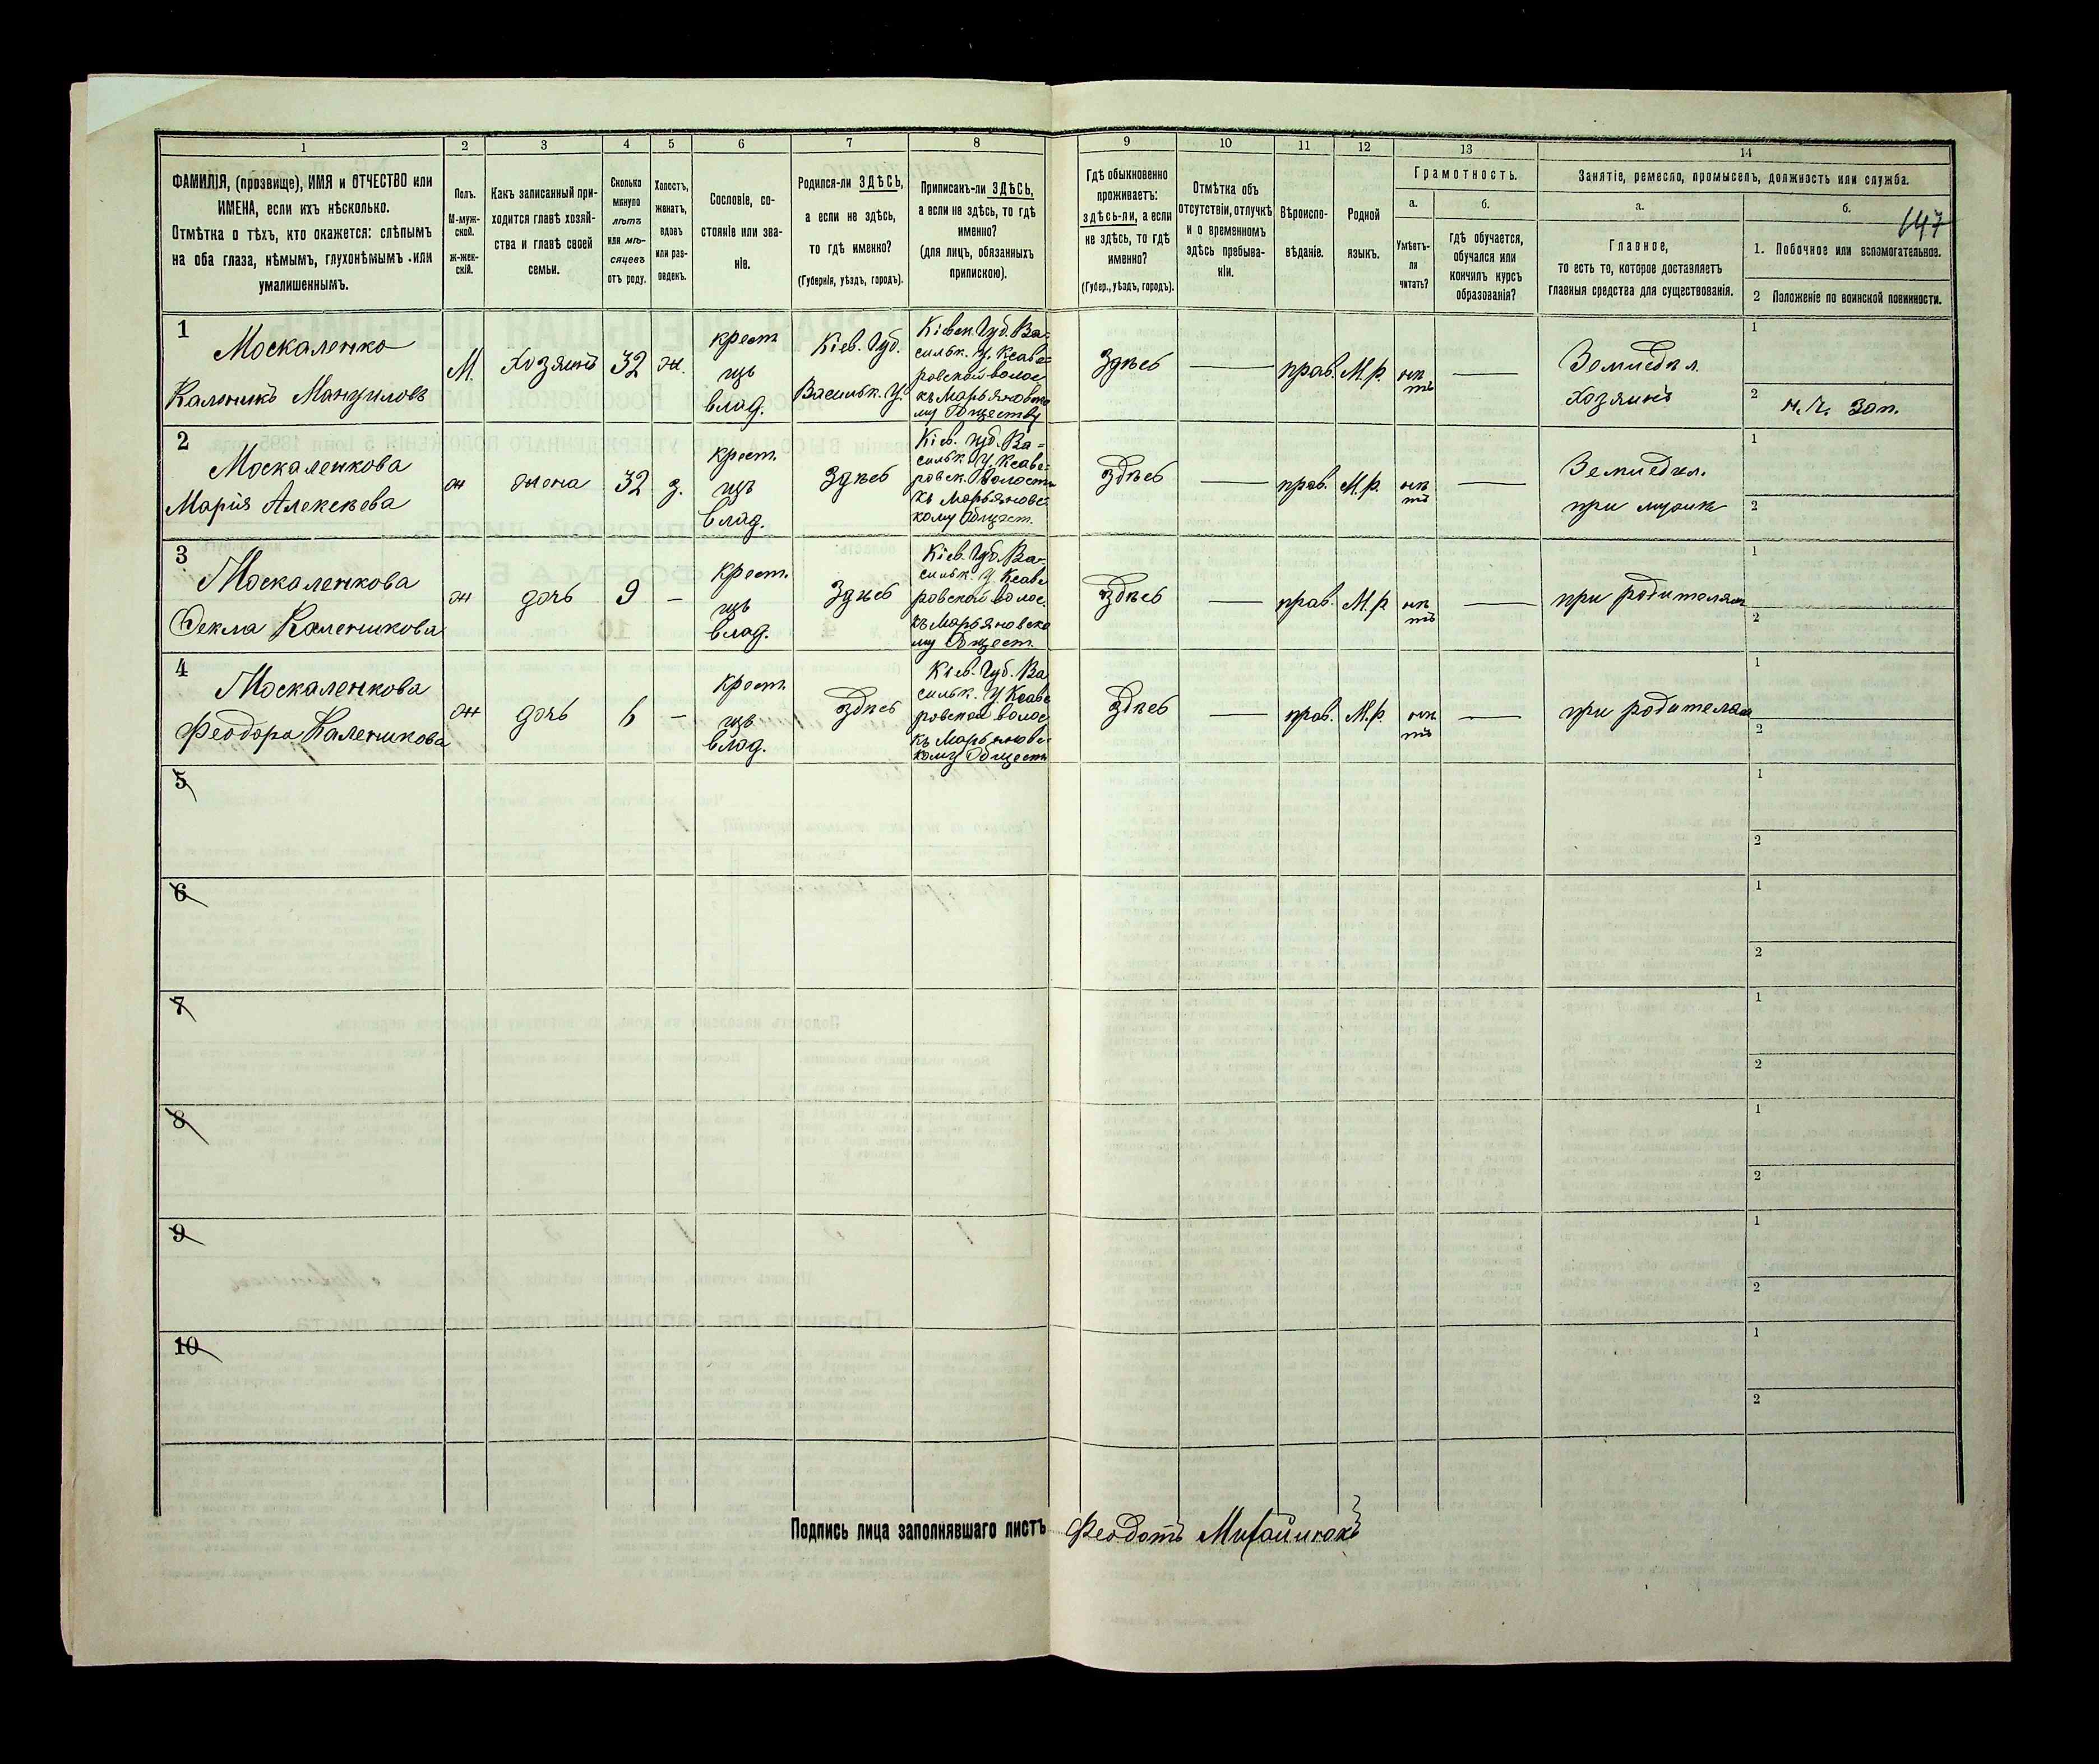 147
1 2 3 4 5 6 7 8 9 10 11 12 13 14
ФАМИЛІЯ, (прозвище), ИМЯ и ОТЧЕСТВО или
ИМЕНА, если ихъ нѣсколько.
Отмѣтка о тѣхъ, кто окажется: слѣпымъ
на оба глаза, нѣмымъ, глухонѣмымъ или
умалишеннымъ.
Полъ.
М-муж-
ской.
ж-жен-
скій.
Какъ записанный при-
ходится главѣ хозяй-
ства и главѣ своей
семьи.
Сколько
минуло
лѣтъ
или мѣ-
сяцевъ
отъ роду.
Холостъ,
женатъ,
вдовъ
или раз-
веденъ.
Сословіе, со-
стояніе или зва-
ніе.
Родился-ли ЗДѢСЬ,
а если не здѣсь,
то гдѣ именно?
(Губернія, уѣздъ, городъ).
Приписанъ-ли ЗДѢСЬ,
а если не здѣсь, то гдѣ
именно?
(для лицъ, обязанныхъ
припискою).
Гдѣ обыкновенно
проживаетъ:
здѣсь-ли, а если
не здѣсь, то гдѣ
именно?
(Губер., уѣздъ, городъ).
Отмѣтка объ
отсутствіи, отлучкѣ
и о временномъ
здѣсь пребыва-
ніи.
Вѣроиспо-
вѣданіе.
Родной
языкъ.
Грамотность.
а.
Умѣетъ-
ли
читать?
б.
гдѣ обучается,
обучался или
кончилъ курсъ
образованія?
Занятіе, ремесло, промыселъ, должность или служба.
а.
Главное,
то есть то, которое доставляетъ
главныя средства для существованія.
б.
1. Побочное или вспомогательное.
2 Положеніе по воинской повинности.
1
Москаленко
Калюникъ Мануиловъ
М.
хозяинъ
32
ж.
крест
изъ
влад.
Кіев. Губ.
Васильк. У.
Кіевск. Губ. Ва-
сильк. У. Ксаве-
ровской волос.
къ Марьяновско
му Обществу
Здѣсь
—
прав.
М.р.
нѣ
тъ
—
Земледѣл.
хозяинъ
1
2 н. ч. зап.
2
Москаленкова
Марія Алексѣева
ж
жена
32
з.
крест.
изъ
влад.
Здѣсь
Кіев. Губ. Ва-
сильк. У. Ксаве-
ровск. Волости
къ Марьяновс-
кому Общест.
Здѣсь
—
прав.
М.р.
нѣ
тъ
—
Земледѣл.
при мужѣ
1
2
3
Москаленкова
Ѳекла Каленикова
ж
дочь
9
—
крест.
изъ
влад.
Здѣсь
Кіев. Губ. Ва-
сильк. У. Ксаве
ровской волос.
къ Марьяновско
му Общест.
Здѣсь
—
прав.
М.р
нѣ
тъ
—
при родителях
1
2
4
Москаленкова
Феодора Каленикова
ж
дочь
6
—
крест.
изъ
влад.
Здѣсь
Кіев. Губ. Ва
сильк. У. Ксаве
ровской волос
къ Марьяновс-
кому Общест
Здѣсь
—
прав.
М.р.
нѣ
тъ
—
при родителях
1
2
5
1
2
6
1
2
7
1
2
8
1
2
9
1
2
10
1
2
Подпись лица заполнявшаго листъ Феодотъ